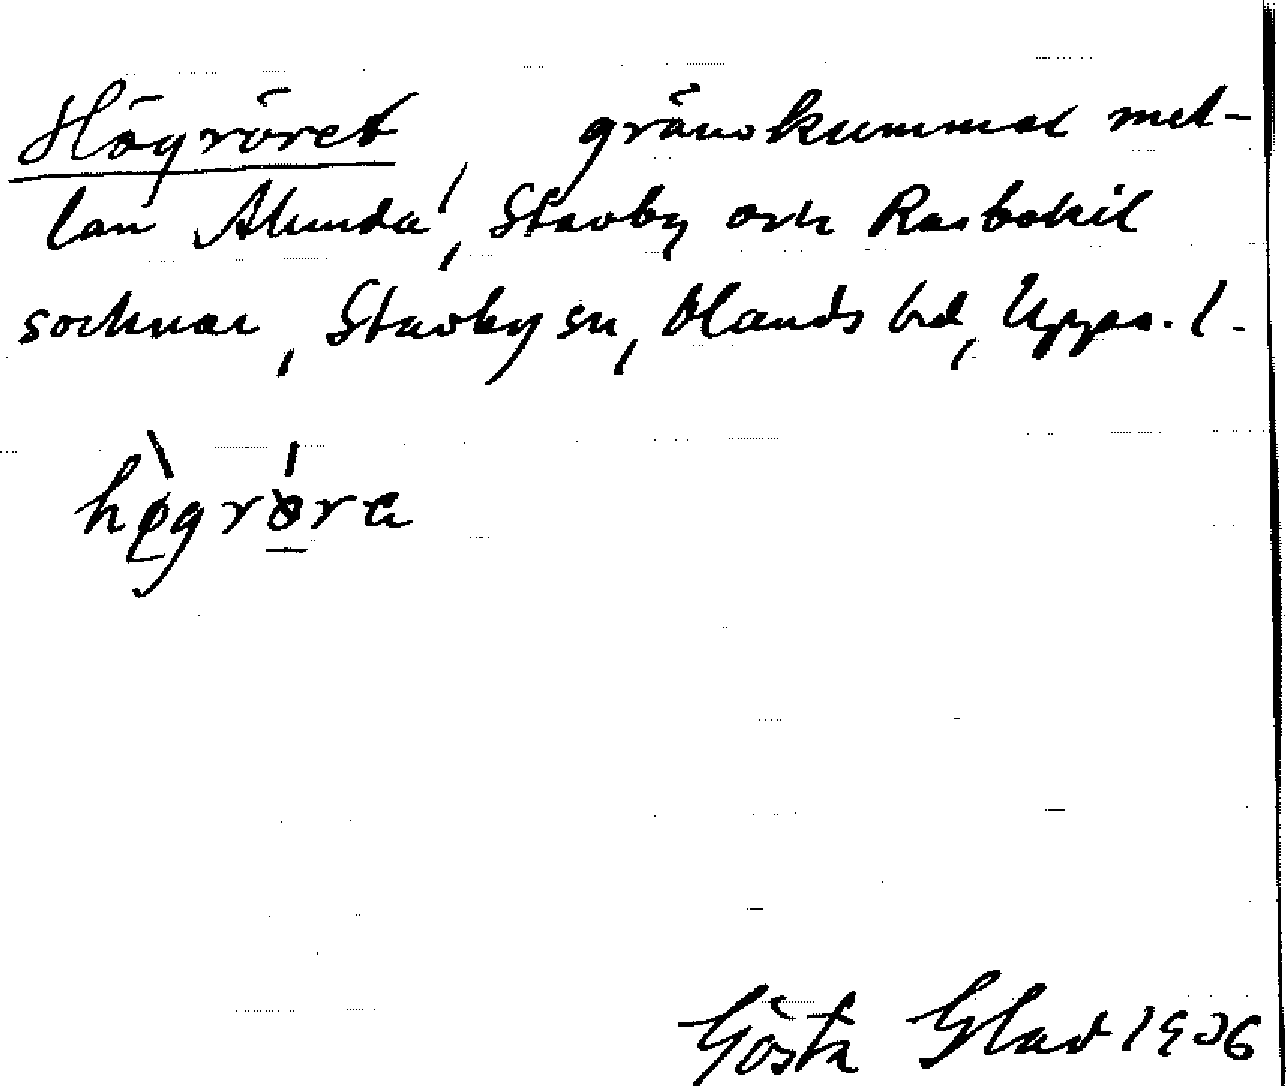 Högröret, gränskummel mel-
lan Alunda, Stavby och Rasbokil
socknar, Stavby sn, Olands hd, Upps. l.
hø̀grǿra
Gösta Glad 1906